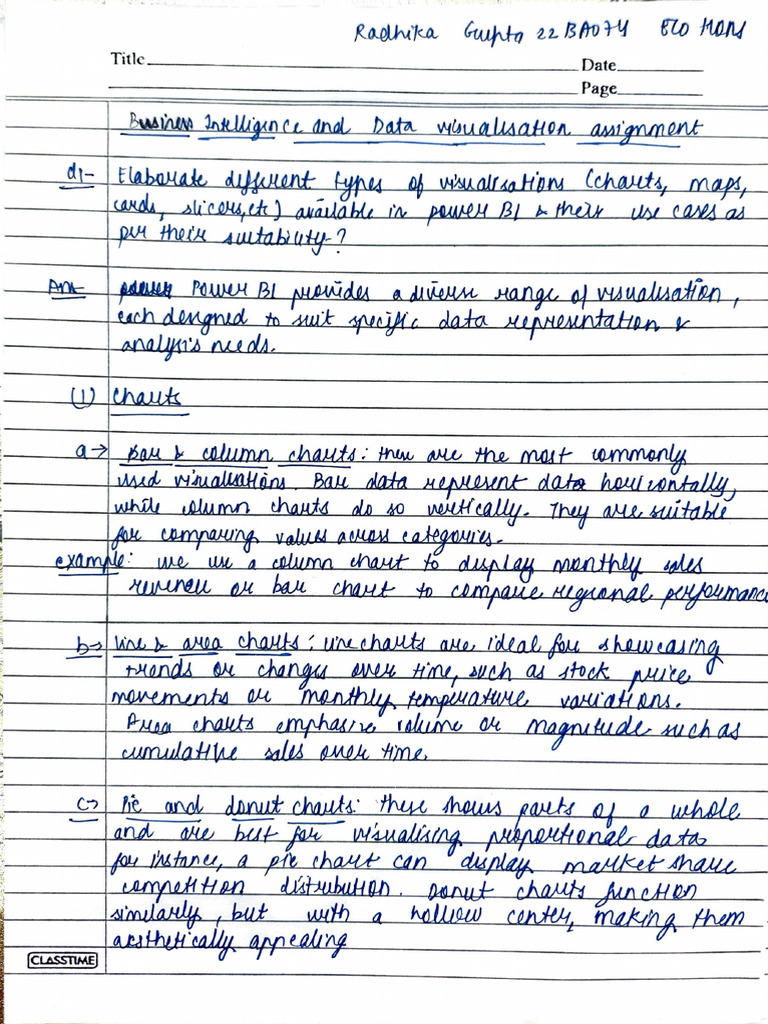 Radhika Gupta 22BA074 ECO HONS
Title
Date
Page
Business Intelligence and Data visualisation assignment
Q1- Elaborate different types of visualisations (charts, maps,
cards, slicers, etc) available in power BI & their use cases as
per their suitability-?
Ans Power BI provides a diverse range of visualisation,
each designed to suit specific data representation &
analysis needs.
(1) Charts
a→ Bar & column charts: these are the most commonly
used visualisations. Bar data represent data horizontally,
while column charts do so vertically. They are suitable
for comparing values across categories.
example: we use a column chart to display monthly sales
revenue or bar chart to compare regional performance
b→ Line & area charts: line charts are ideal for showcasing
trends or changes over time, such as stock price
movements or monthly temperature variations.
Area charts emphasise volume or magnitude such as
cumulative sales over time.
c→ Pie and donut charts: these shows parts of a whole
and are best for visualising proportional data
for instance, a pie chart can display market share
competition distribution. Donut charts function
similarly, but with a hollow center, making them
aesthetically appealing
CLASSTIME